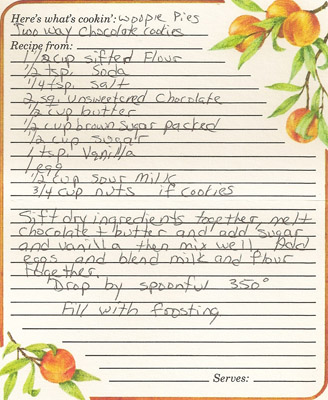 Here's what's cookin': Woopie Pies
Two way Chocolate cookies
Recipe from:
1 1/2 cup sifted Flour
1/2 tsp. Soda
1/4 tsp. salt
2 sq. unsweetened Chocolate
1/2 cup butter
1/2 cup brown sugar packed
1/2 cup sugar
1 tsp. Vanilla
1 egg
1/2 cup sour milk
3/4 cup nuts if cookies
Sift dry ingredients together, melt
chocolate + butter and add sugar
and vanilla then mix well. Add
eggs and blend milk and flour
together.
Drop by spoonful 350°
Fill with frosting
Serves: